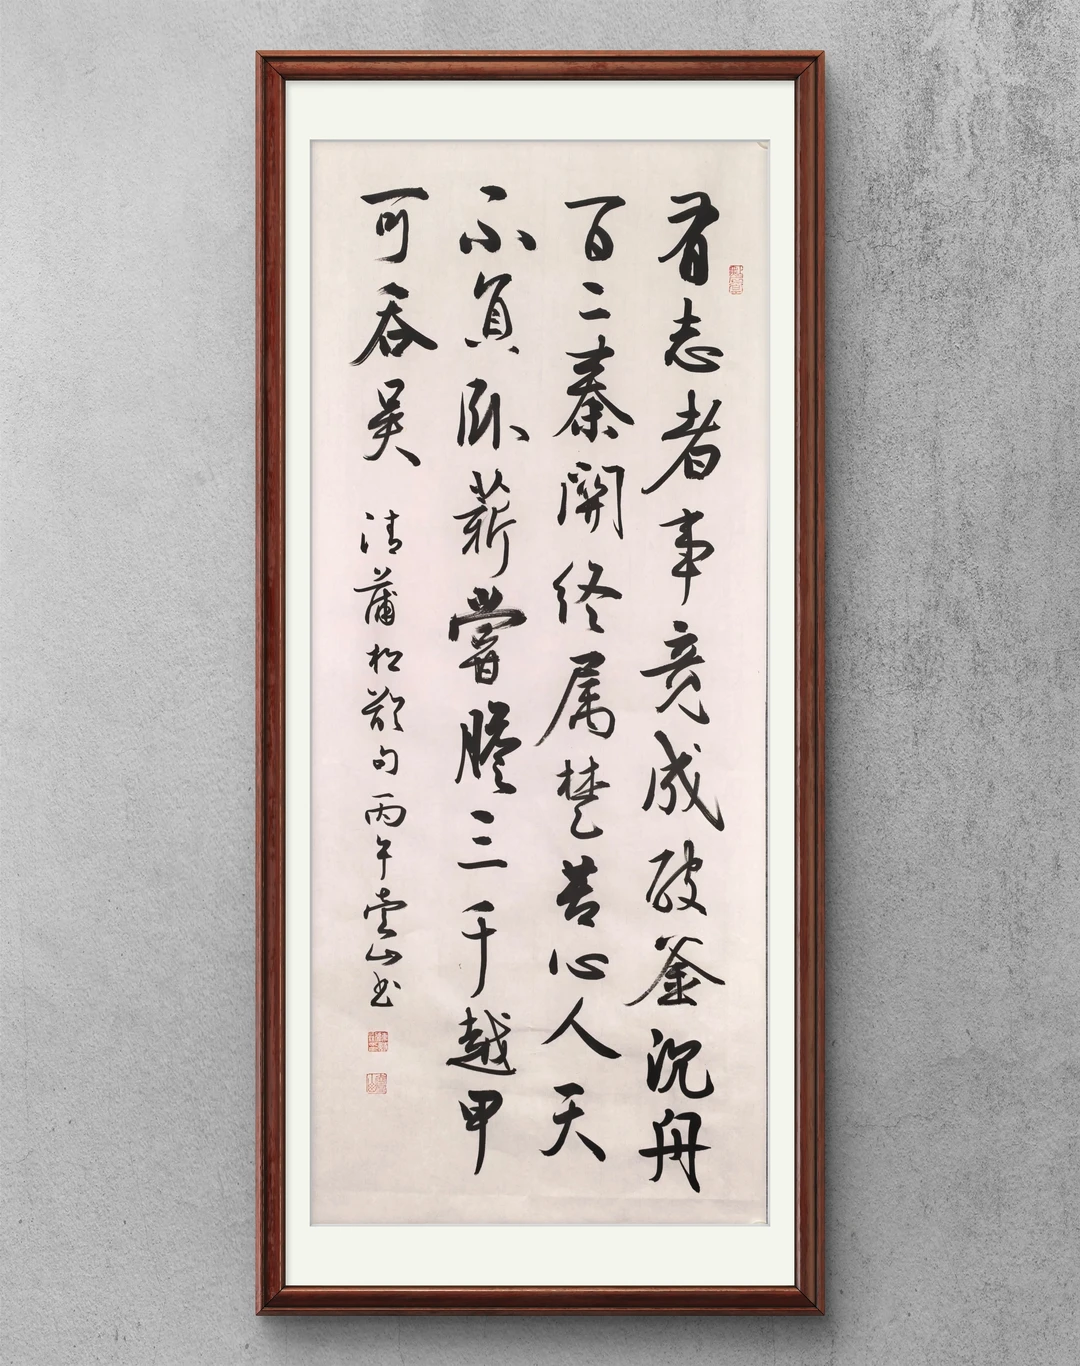 有志者事竟成破釜沉舟
百二秦關终属楚苦心人天
不負卧薪嘗膽三千越甲
可吞吴 清蒲松龄句丙午山书